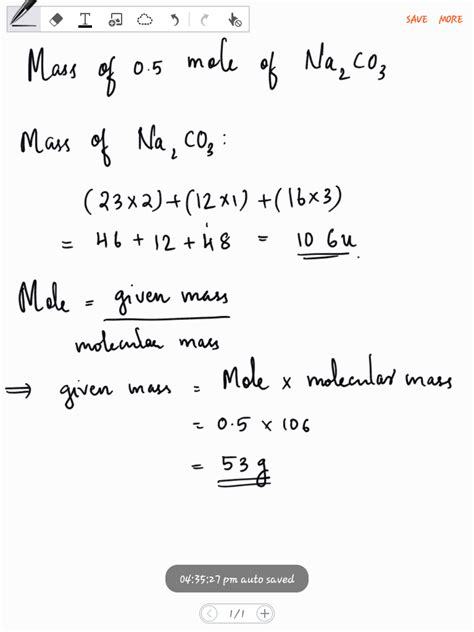 T
SAVE MORE
Mass of 0.5 mole of Na₂CO₃
Mass of Na₂CO₃:
(23×2)+(12×1)+(16×3)
= 46 + 12 + 48 = 106u.
Mole = given mass
molecular mass
⇒ given mass = Mole × molecular mass
= 0.5 × 106
= 53 g
04:35:27 pm auto saved
1/1 +